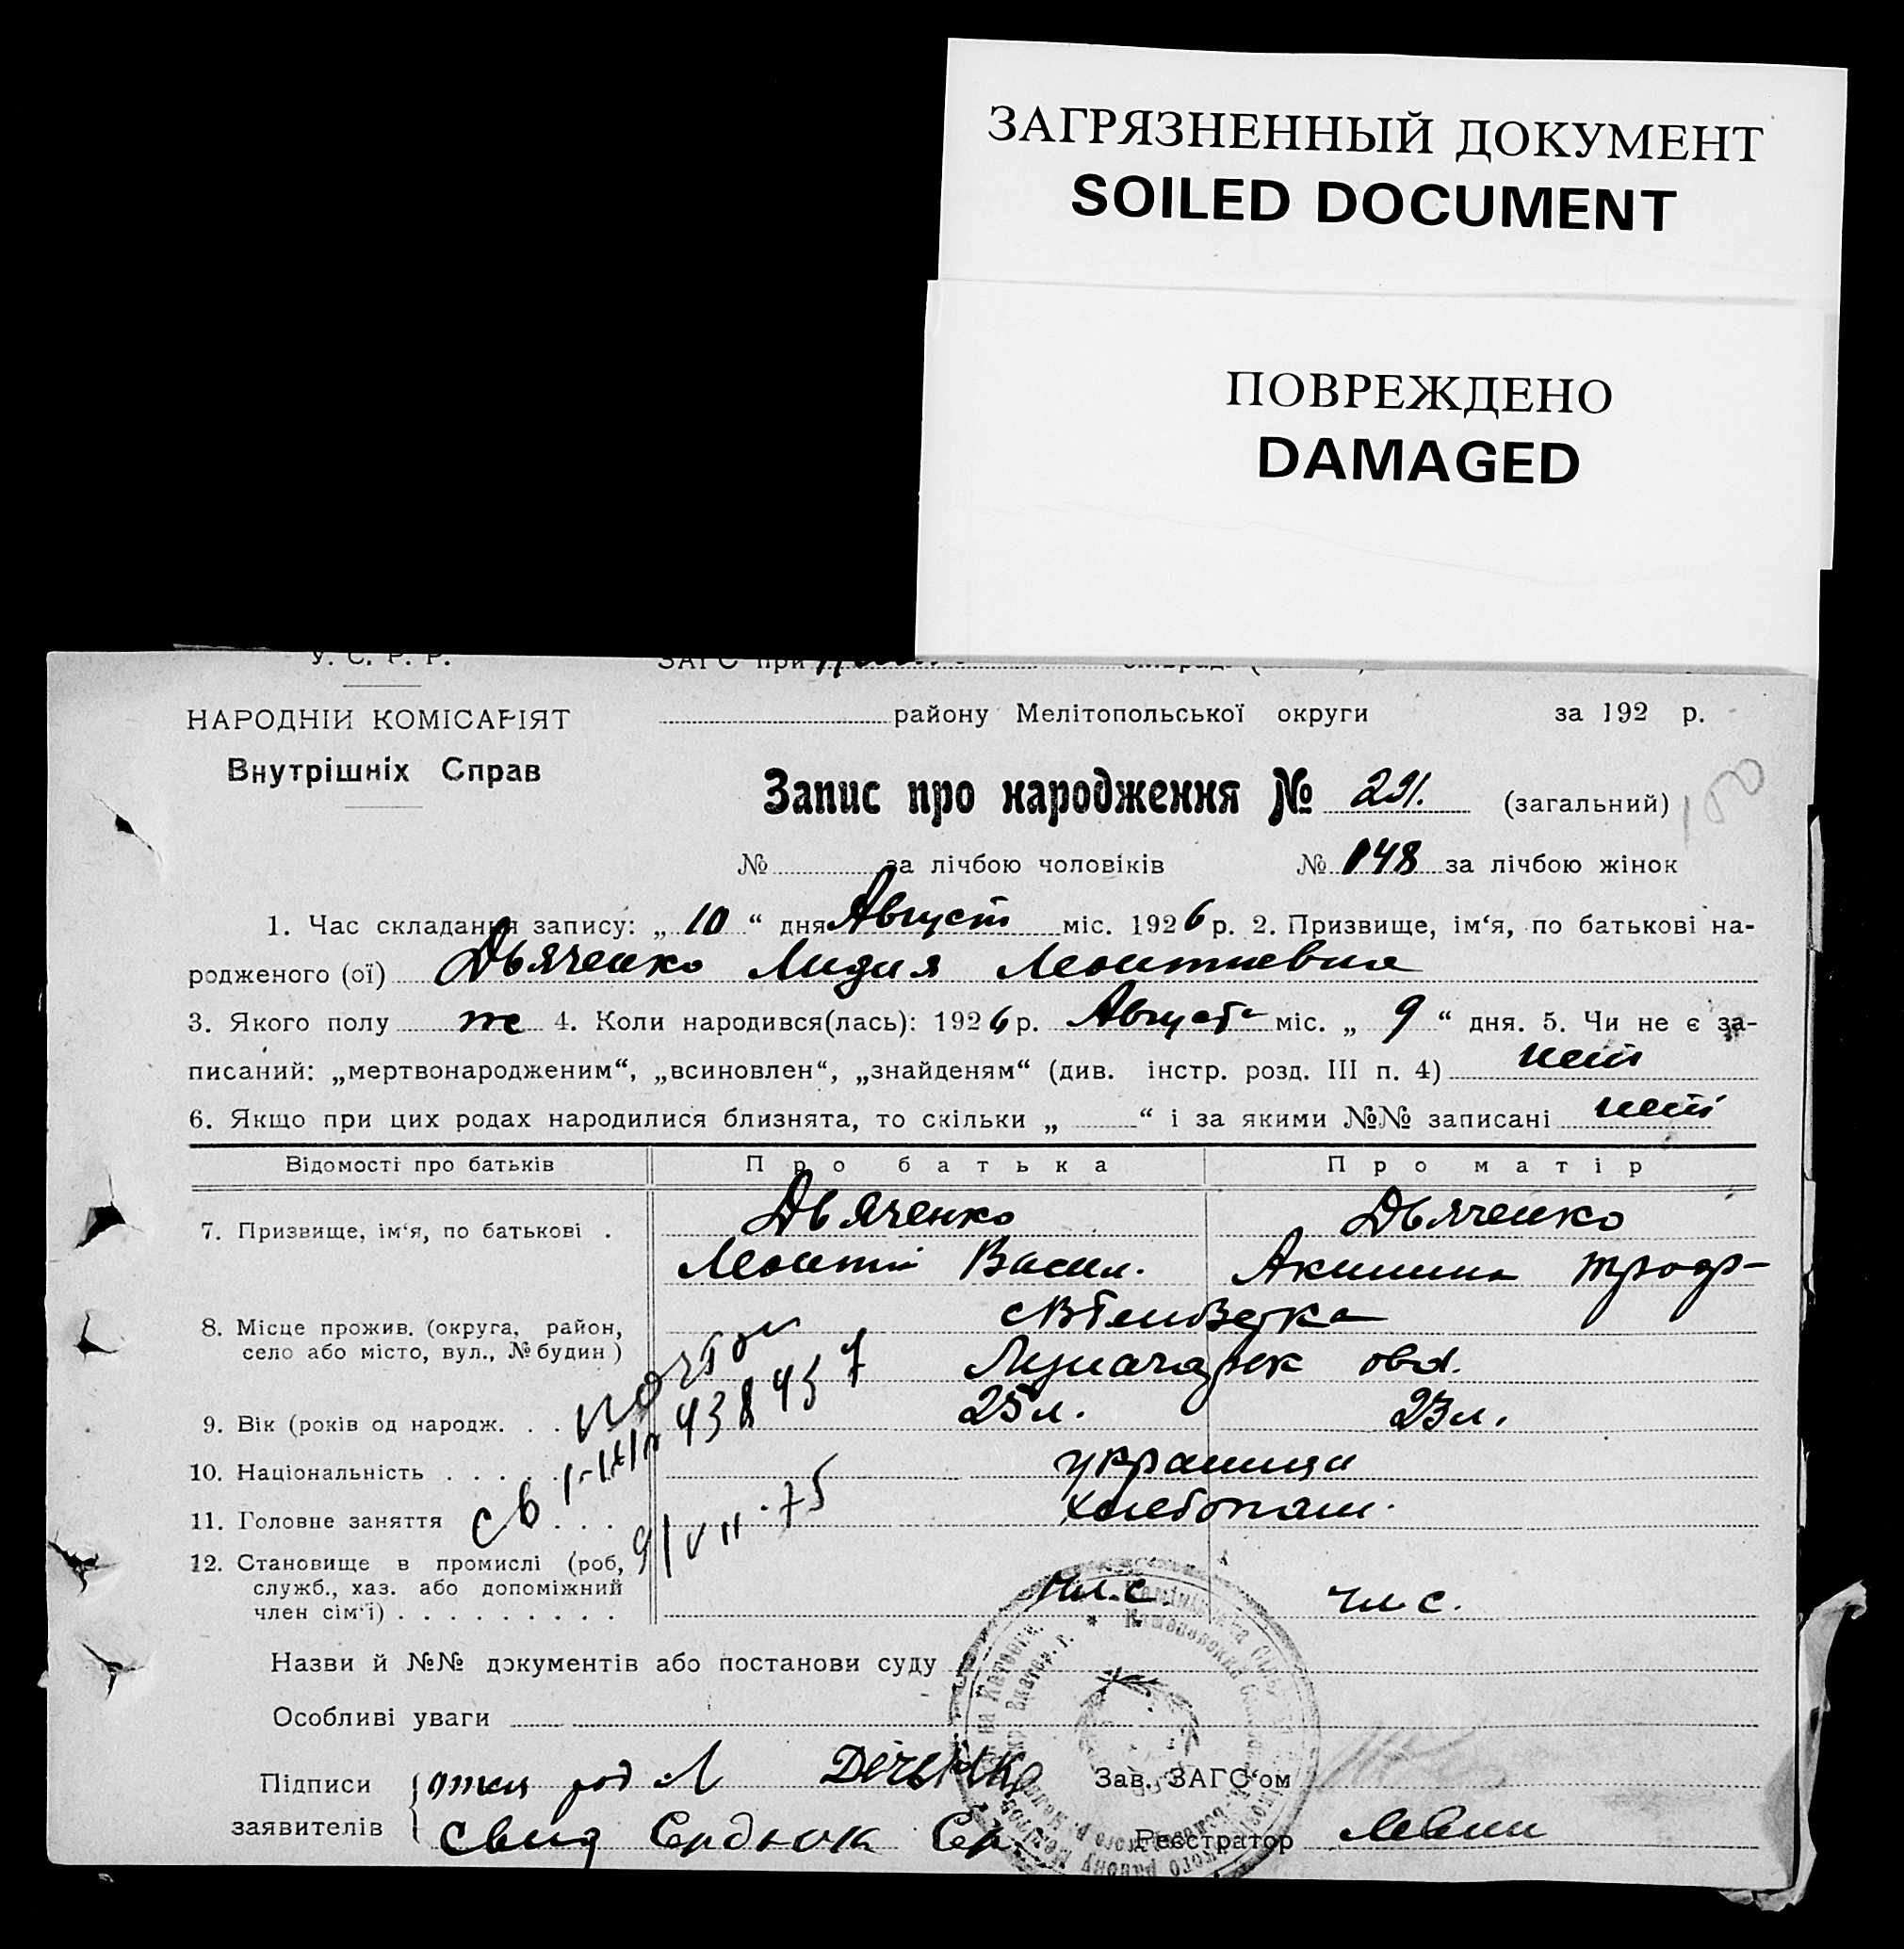 ЗАГРЯЗНЕННЫЙ ДОКУМЕНТ
SOILED DOCUMENT
ПОВРЕЖДЕНО
DAMAGED
У. С. Р. Р.
ЗАГС при
НАРОДНІЙ КОМІСАРІЯТ
району Мелітопольської округи за 192 р.
Внутрішніх Справ
Запис про народження № 291. (загальний)
100
№ за лічбою чоловіків № 148 за лічбою жінок
1. Час складання запису: „ 10 “ дня Август міс. 1926 р. 2. Призвище, ім‘я, по батькові на-
родженого (ої) Дьяченко Лидия Леонтиевна
3. Якого полу ж 4. Коли народився(лась): 1926 р. Августа міс. „ 9 “ дня. 5. Чи не є за-
писаний: „мертвонародженим“, „всиновлен“, „знайденям“ (див. інстр. розд. III п. 4) нет
6. Якщо при цих родах народилися близнята, то скільки „ “ і за якими №№ записані нет
Відомості про батьків Про батька Про матір
7. Призвище, ім‘я, по батькові . Дьяченко Дьяченко
Леонтий Васил. Акилина Троф-
8. Місце прожив. (округа, район,
село або місто, вул., № будин) обл.
9. Вік (років од народж. . . 25 л. 23 л.
10. Національність . . . . украинци
11. Головне заняття . . . хлебопаш.
12. Становище в промислі (роб,
служб., хаз. або допоміжний
член сім‘ї) . . . . . . . . . чл. с. чл. с.
св
438457
9/VII.75
Назви й №№ документів або постанови суду
Особливі уваги
Підписи Зав. ЗАГС‘ом
заявителів Сердюк Реєстратор